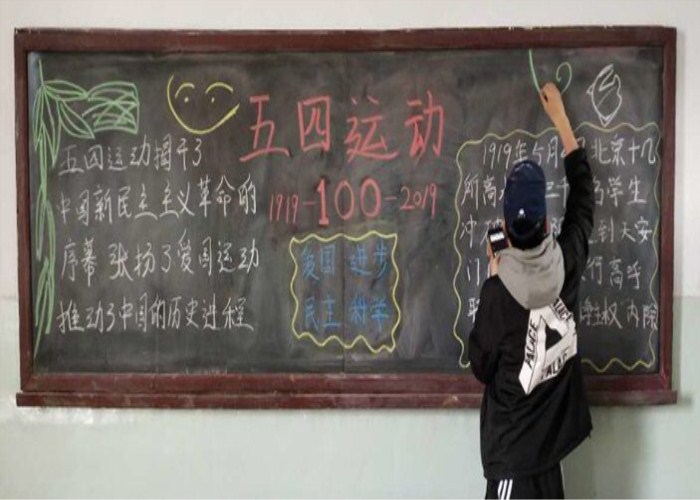 五四运动
1919-100-2019
五四运动揭开了
中国新民主主义革命的
序幕 张扬了爱国运动
推动了中国的历史进程
爱国 进步
民主 科学
1919年5月 北京十几
所高 学生
冲 到天安
门 行高呼
主权 内除
PALACE
PALACE